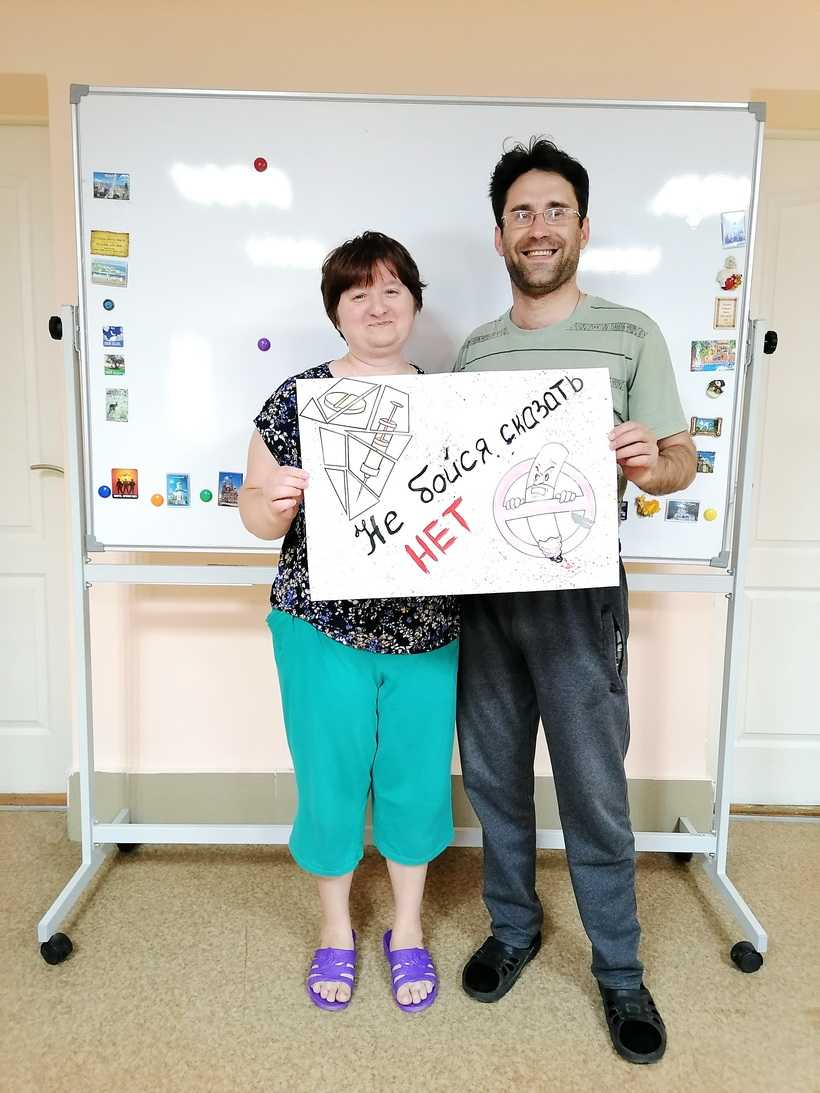 Не бойся сказать
НЕТ